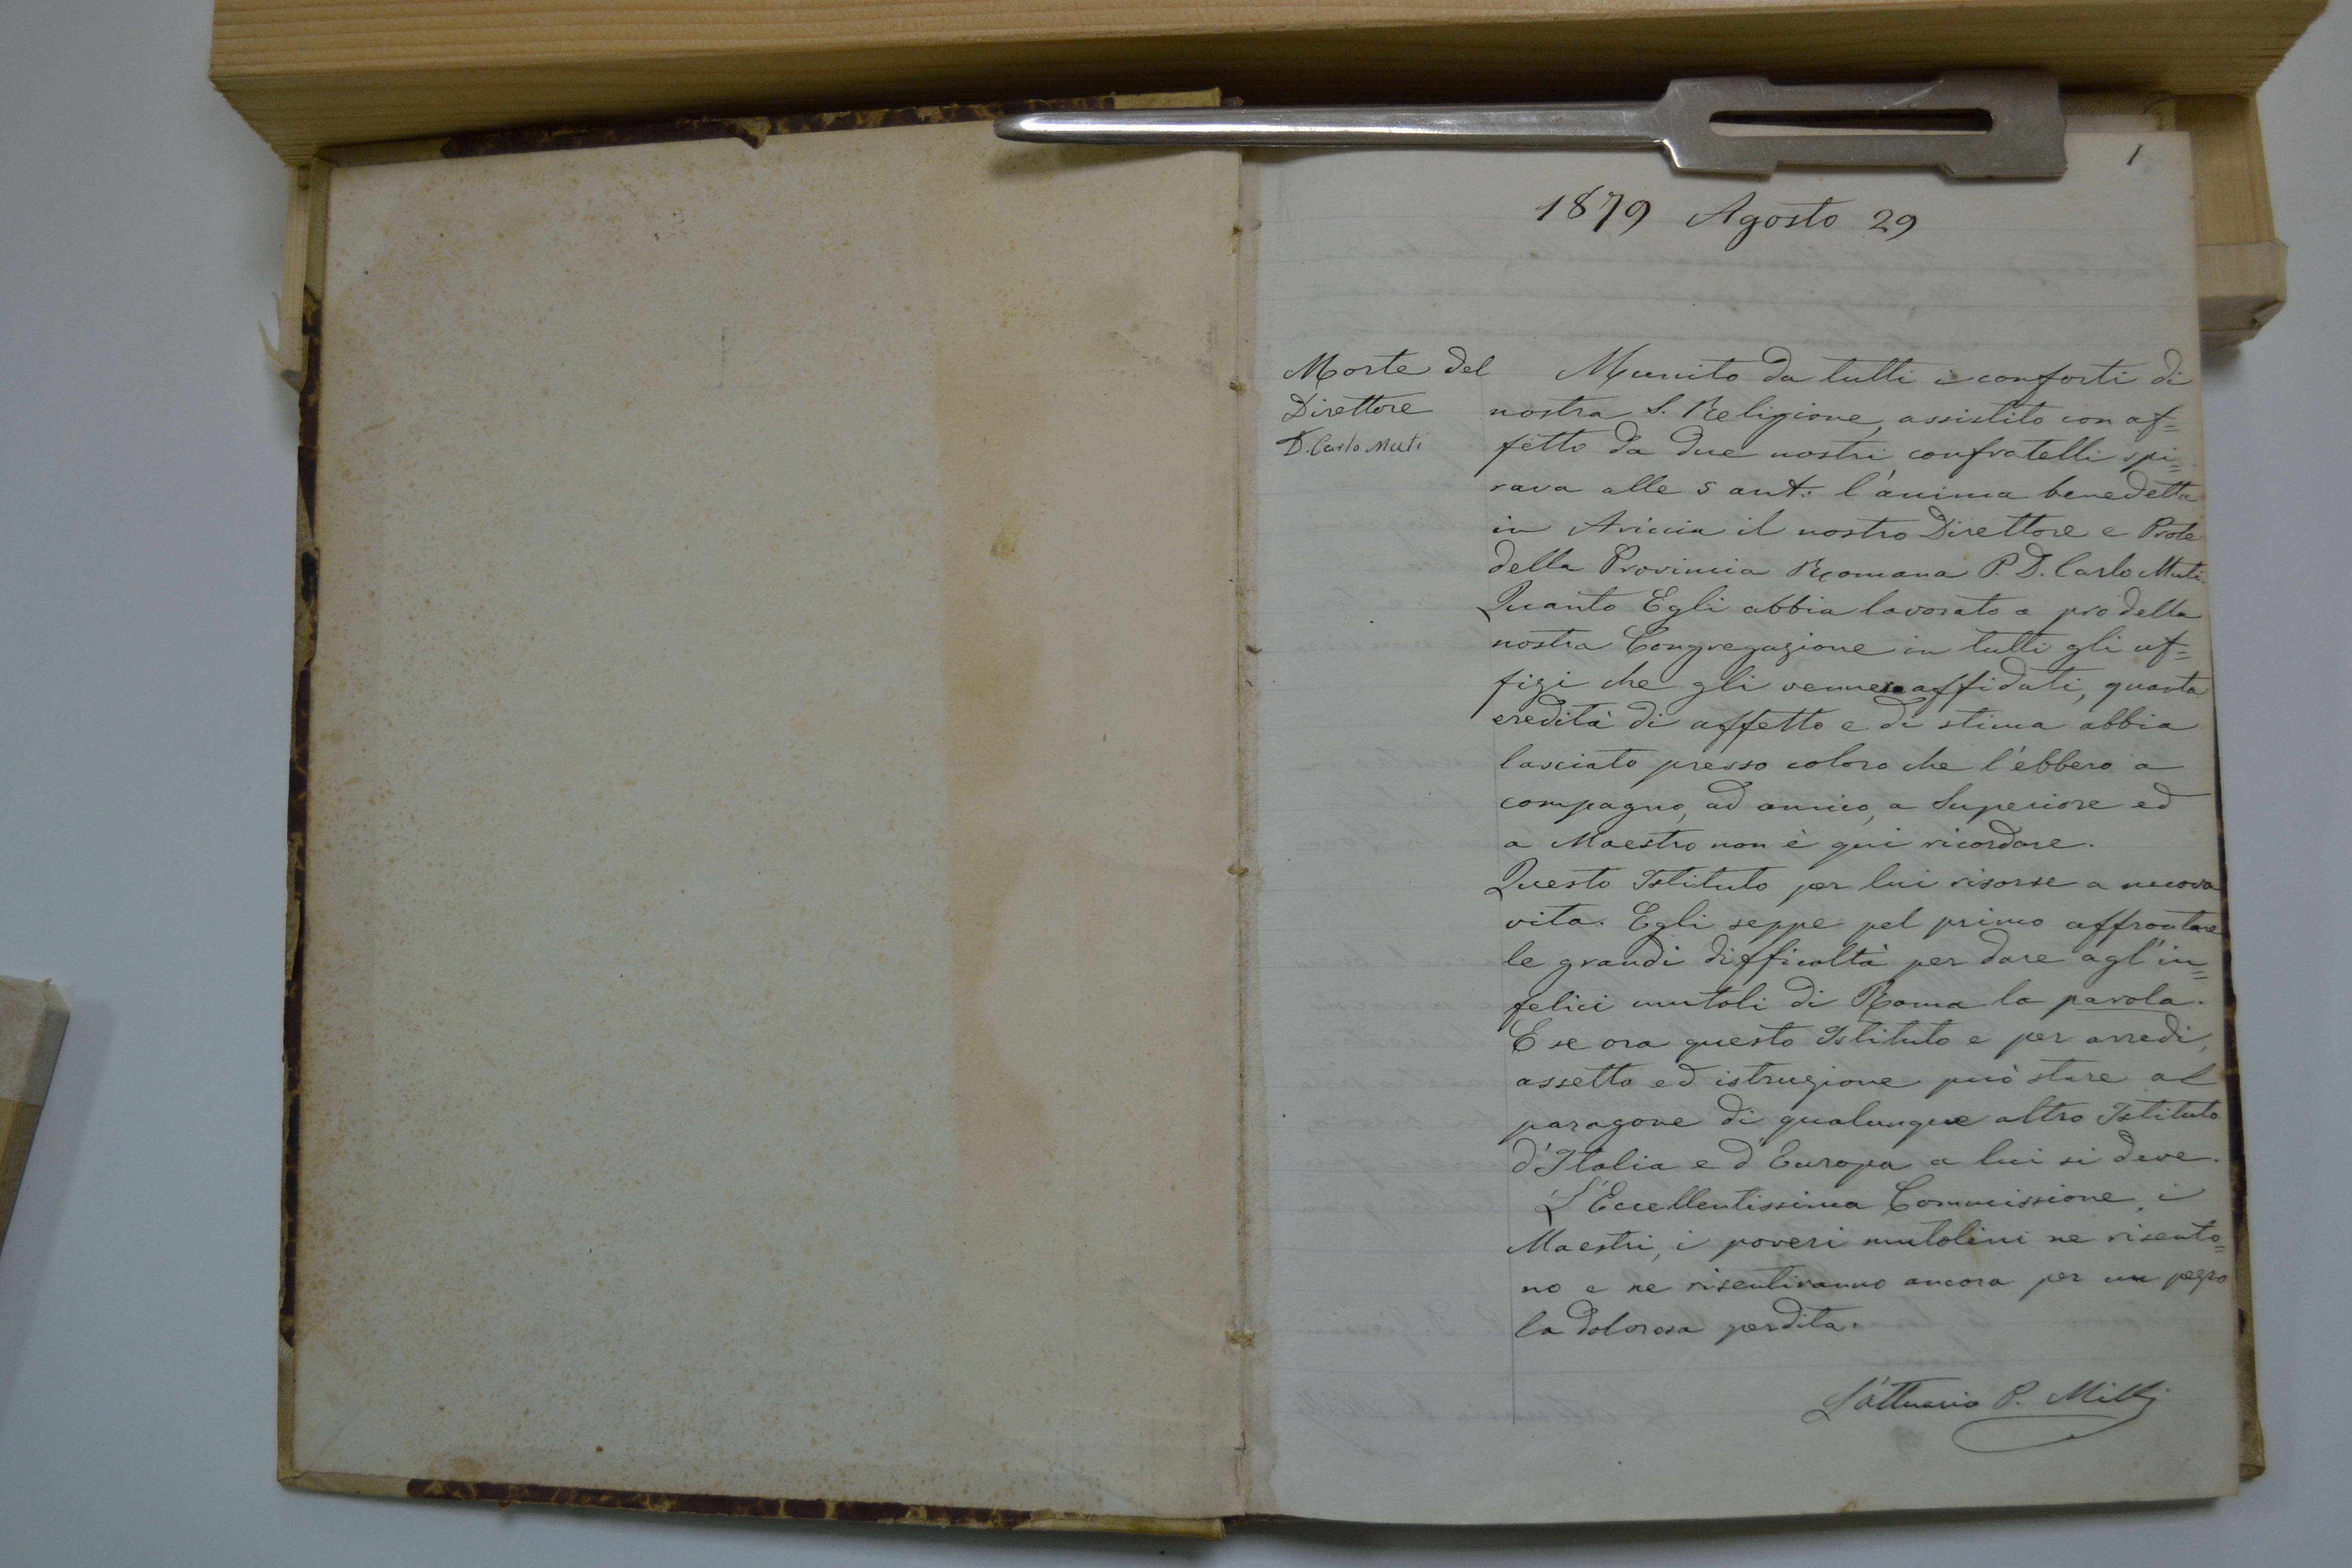 1
1879 Agosto 29
Morte del
Direttore
D. Carlo Muti
Munito da tutti i conforti di
nostra S. Religione, assistito con af=
fetto da due nostri confratelli spi=
rava alle 5 ant: l'anima benedetta
in Ariccia il nostro Direttore e Prole
della Provincia Romana P. D. Carlo Muti.
Quanto Egli abbia lavorato a pro della
nostra Congregazione in tutti gli uf=
fizi che gli vennero affidati, quanta
eredità di affetto e di stima abbia
lasciato presso coloro che l'ebbero a
compagno, ad amico, a Superiore ed
a Maestro non è qui ricordare.
Questo Istituto per lui risorse a nuova
vita. Egli seppe pel primo affrontare
le grandi difficoltà per dare agl'in=
felici mutoli di Roma la parola.
E se ora questo Istituto e per arredi,
assetto ed istruzione può stare al
paragone di qualunque altro Istituto
d'Italia e d'Europa a lui si deve.
L'Eccellentissima Commissione, i
Maestri, i poveri mutolini ne risento=
no e ne risentiranno ancora per un pezzo
la dolorosa perdita.
L'attuario P. Milli